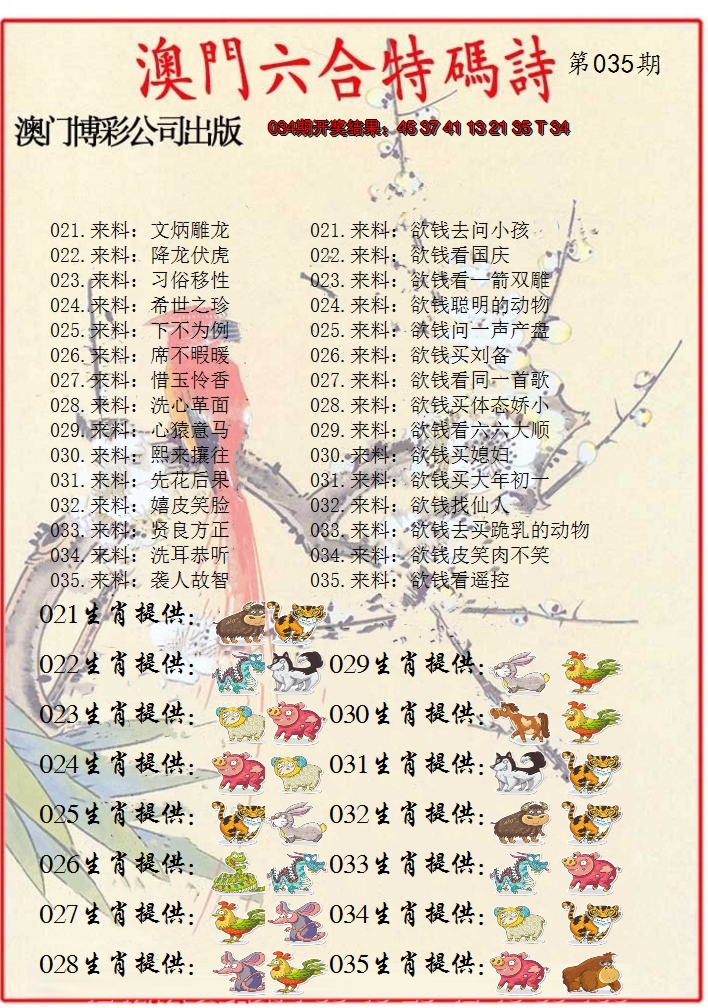 澳門六合特碼詩 第035期
澳门博彩公司出版 034期开奖结果：45 37 41 13 21 35 T 34
021.来料：文炳雕龙 021.来料：欲钱去问小孩
022.来料：降龙伏虎 022.来料：欲钱看国庆
023.来料：习俗移性 023.来料：欲钱看一箭双雕
024.来料：希世之珍 024.来料：欲钱聪明的动物
025.来料：下不为例 025.来料：欲钱问一声产盘
026.来料：席不暇暖 026.来料：欲钱买刘备
027.来料：惜玉怜香 027.来料：欲钱看同一首歌
028.来料：洗心革面 028.来料：欲钱买体态娇小
029.来料：心猿意马 029.来料：欲钱看六六大顺
030.来料：熙来攘往 030.来料：欲钱买媳妇
031.来料：先花后果 031.来料：欲钱买大年初一
032.来料：嬉皮笑脸 032.来料：欲钱找仙人
033.来料：贤良方正 033.来料：欲钱去买跪乳的动物
034.来料：洗耳恭听 034.来料：欲钱皮笑肉不笑
035.来料：袭人故智 035.来料：欲钱看遥控
021生肖提供：
022生肖提供： 029生肖提供：
023生肖提供： 030生肖提供：
024生肖提供： 031生肖提供：
025生肖提供： 032生肖提供：
026生肖提供： 033生肖提供：
027生肖提供： 034生肖提供：
028生肖提供： 035生肖提供：